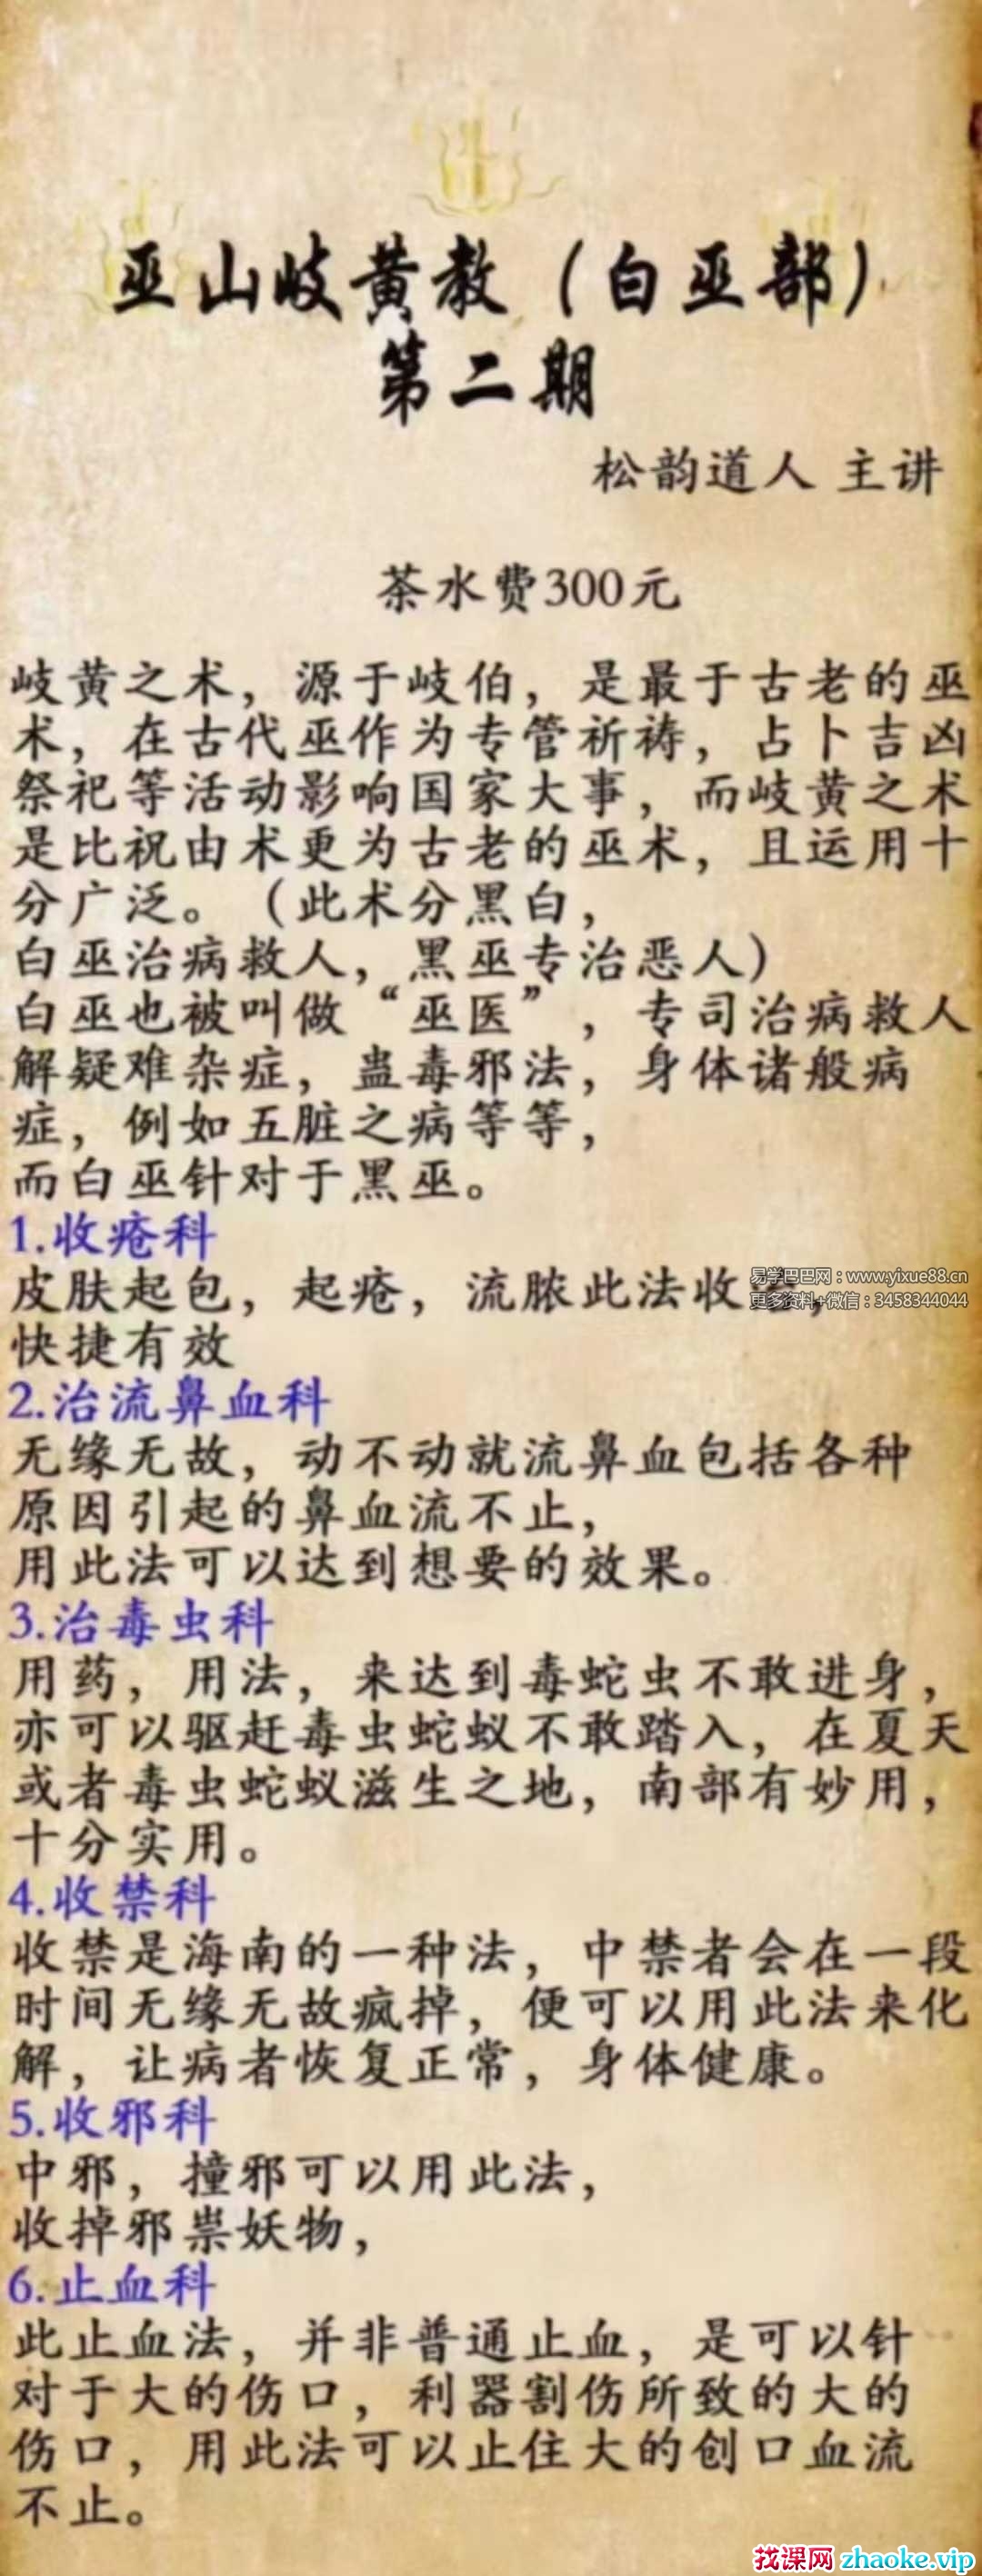 巫山岐黄教（白巫部）
第二期
松韵道人 主讲
茶水费300元
岐黄之术，源于岐伯，是最于古老的巫
术，在古代巫作为专管祈祷，占卜吉凶
祭祀等活动影响国家大事，而岐黄之术
是比祝由术更为古老的巫术，且运用十
分广泛。（此术分黑白，
白巫治病救人，黑巫专治恶人）
白巫也被叫做“巫医”，专司治病救人
解疑难杂症，蛊毒邪法，身体诸般病
症，例如五脏之病等等，
而白巫针对于黑巫。
1.收疮科
皮肤起包，起疮，流脓此法收
易学巴巴网：www.yixue88.cn
更多资料+微信：3458344044
快捷有效
2.治流鼻血科
无缘无故，动不动就流鼻血包括各种
原因引起的鼻血流不止，
用此法可以达到想要的效果。
3.治毒虫科
用药，用法，来达到毒蛇虫不敢进身，
亦可以驱赶毒虫蛇蚁不敢踏入，在夏天
或者毒虫蛇蚁滋生之地，南部有妙用，
十分实用。
4.收禁科
收禁是海南的一种法，中禁者会在一段
时间无缘无故疯掉，便可以用此法来化
解，让病者恢复正常，身体健康。
5.收邪科
中邪，撞邪可以用此法，
收掉邪祟妖物，
6.止血科
此止血法，并非普通止血，是可以针
对于大的伤口，利器割伤所致的大的
伤口，用此法可以止住大的创口血流
不止。
找课网 zhaoke.vip